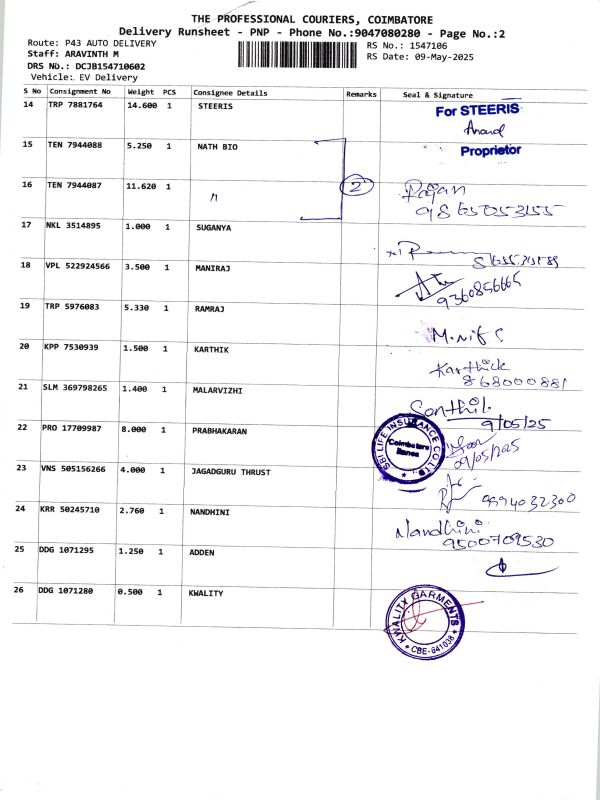 THE PROFESSIONAL COURIERS, COIMBATORE
Delivery Runsheet - PNP - Phone No.:9047080280 - Page No.:2
Route: P43 AUTO DELIVERY
RS No.: 1547106
Staff: ARAVINTH M
RS Date: 09-May-2025
DRS No.: DCJB154710602
Vehicle: EV Delivery
S No Consignment No Weight PCS Consignee Details Remarks Seal & Signature
14 TRP 7881764 14.600 1 STEERIS
For STEERIS
Anand
Proprietor
15 TEN 7944088 5.250 1 NATH BIO
16 TEN 7944087 11.620 1 〃 2
Rajan
9865053155
17 NKL 3514895 1.000 1 SUGANYA
18 VPL 522924566 3.500 1 MANIRAJ
9360856665
19 TRP 5976083 5.330 1 RAMRAJ
20 KPP 7530939 1.500 1 KARTHIK
Karthick
868000881
21 SLM 369798265 1.400 1 MALARVIZHI
Santhil
9/05/25
22 PRO 17709987 8.000 1 PRABHAKARAN
SBI LIFE INSURANCE CO.LTD
Coimbatore
09/05/2025
23 VNS 505156266 4.000 1 JAGADGURU THRUST
9994032300
24 KRR 50245710 2.760 1 NANDHINI
Nandhini
9500709530
25 DDG 1071295 1.250 1 ADDEN
26 DDG 1071280 0.500 1 KWALITY
KWALITY GARMENTS
* CBE-641038 *